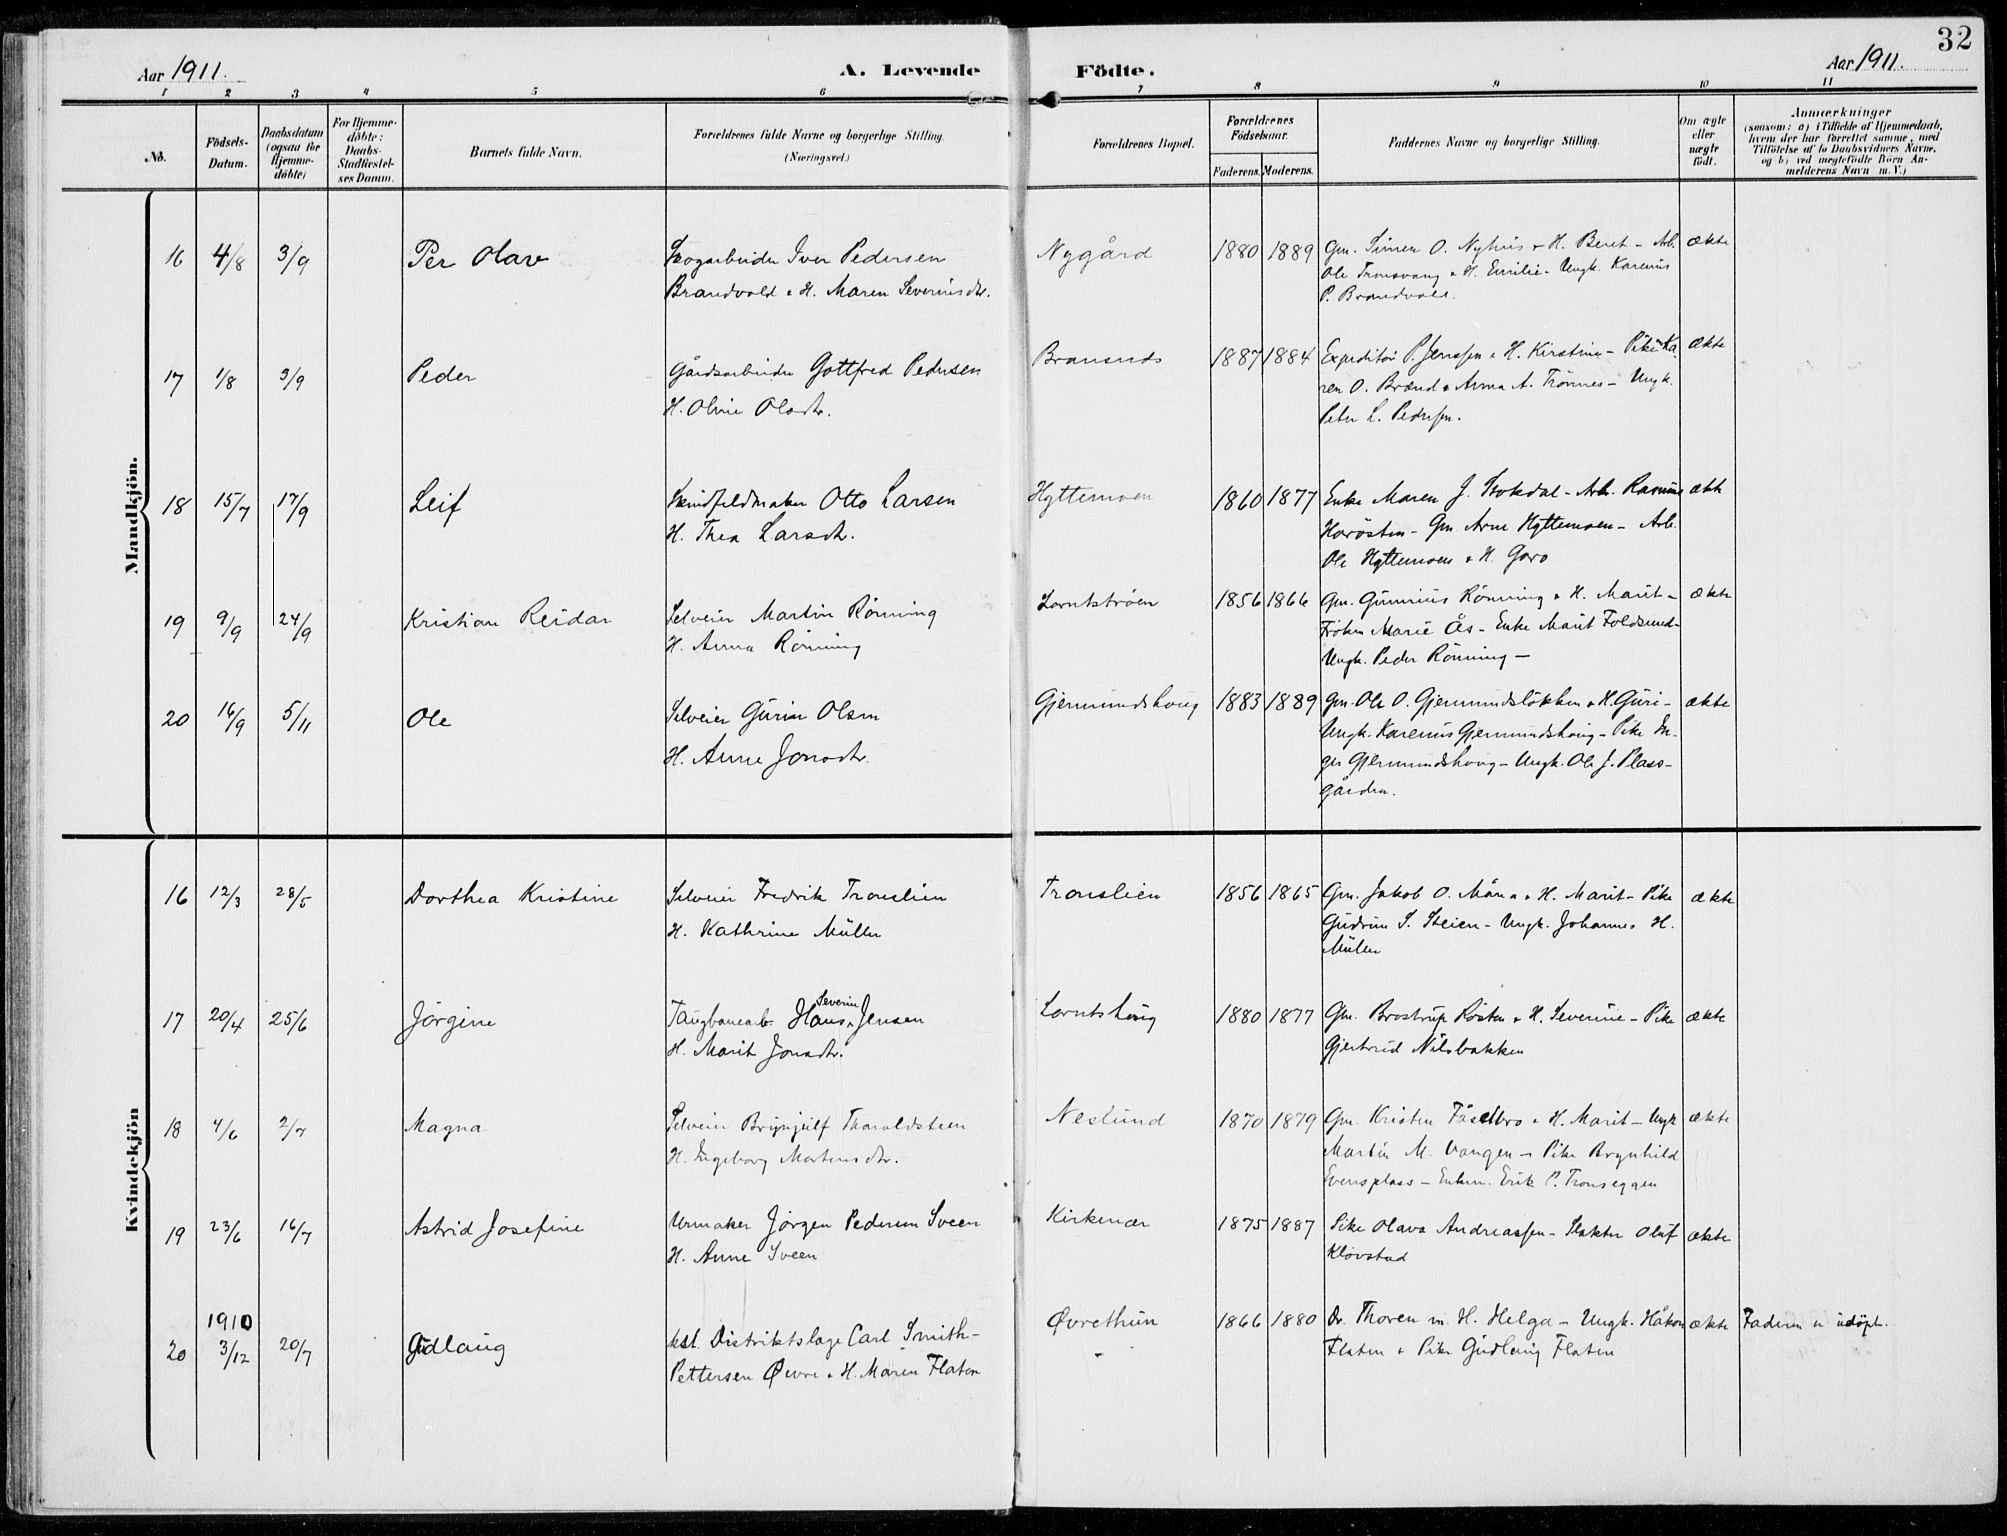 32
Aar 1911.
A. Levende Födte.
Aar 1911.
1 2 3 4 5 6 7 8 9 10 11
No.
Födsels-
Datum.
Daabsdatum
(ogsaa for
Hjemme-
döbte)
For Hjemme-
döbte:
Daabs-
Stadfæstel-
ses Datum.
Barnets fulde Navn.
Forældrenes fulde Navne og borgerlige Stilling.
(Næringsvei.)
Forældrenes Bopæl.
Forældrenes
Födselsaar.
Faderens. Moderens.
Faddernes Navne og borgerlige Stilling.
Om ægte
eller
uægte
født.
Anmærkninger
(saasom: a) i Tilfælde af Hjemmedaab,
hvem der har forrettet samme, med
Tilföielse af to Daabsvidners Navne,
og b) ved uægtefödte Börn An-
melderens Navn m. V.)
Mandkjön.
16 4/8 3/9 Per Olav Skogarbeider Iver Pedersen
Brandvold & H. Maren Severinsdtr.
Nygård 1880 1889 Gm. Simen O. Nyhus & H. Beret – Arb.
Ole Tronsvang & H. Emilie – Ungk. Karenus
P. Brandvold.
ækte
17 1/8 3/9 Peder Gårdsarbeider Gottfred Pedersen
H. Oline Olsdtr.
1887 1884 Expeditör P. Jenssen & H. Kirstine – Pike Ka
ren O. Brænd & Anna A. Trönnes – Ungk.
Peter L. Pedersen.
ækte
18 15/7 17/9 Leif Skindfeldmaker Otto Larsen
H. Thea Larsdtr.
Hyttemoen 1860 1877 Enke Maren J. – Arb. Rasmus
– Gm Arne Hyttemoen – Arb.
Ole Hyttemoen & H. Goro
ækte
19 9/9 24/9 Kristian Reidar Selveier Martin Rönning
H. Anna Rönning
Lorntströen 1856 1866 Gm. Gunerius Rönning & H. Marit –
Fröken Marie Ås – Enke Marit Foldsund –
Ungk. Peder Rönning –
ækte
20 16/9 5/11 Ole Selveier Olsen
H. Anne Jonsdtr.
Gjermundshoug 1883 1889 Gm. Ole O. Gjermundslökken & H. Guri –
Ungk. Karenius Gjermundshoug – Pike In-
ger Gjermundshoug – Ungk. Ole J. Plass-
gården.
ækte
Kvindekjön
16 12/3 28/5 Dorthea Kristine Selveier Fredrik Tronslien
H. Kathrine Müller
Tronslien 1856 1865 Gm. Jakob O. Måna & H. Marit – Pike
Gudrun S. Steien – Ungk. Johannes H.
Müller
ækte
17 20/4 25/6 Jörgine Taugbanearb. Hans Severin Jensen
H. Marit Jonsdtr.
Lorntshoug 1880 1877 Gm. Brostrup Røsten & H. Severine – Pike
Gjertrud Nilsbakken
ækte
18 4/6 2/7 Magna Selveier Brynjulf Tharaldsteen
H. Ingeborg Mortensdtr.
Neslund 1870 1879 Gm. Kristen Fåsetbro & H. Marit – Ungk
Martin M. Vangen – Pike Brynhild
Evensplass – Enkem. Erik P. Tronseggen
ækte
19 23/6 16/7 Astrid Josefine Urmaker Jörgen Pedersen Sveen
H. Anne Sveen
Kirkenær 1875 1887 Pike Olava Andreassen – Slakter Oluf
Klövstad
ækte
1910
20 3/12 20/7 Gudlaug kst. Distriktslæge Carl Smith-
Pettersen Øvre & H. Maren Flaten
Øvrethun 1866 1880 Dr. Thoren m. H. Helga – Ungk. Håkon
Flaten & Pike Gudlaug Flaten
ækte Faderen er udöpt.